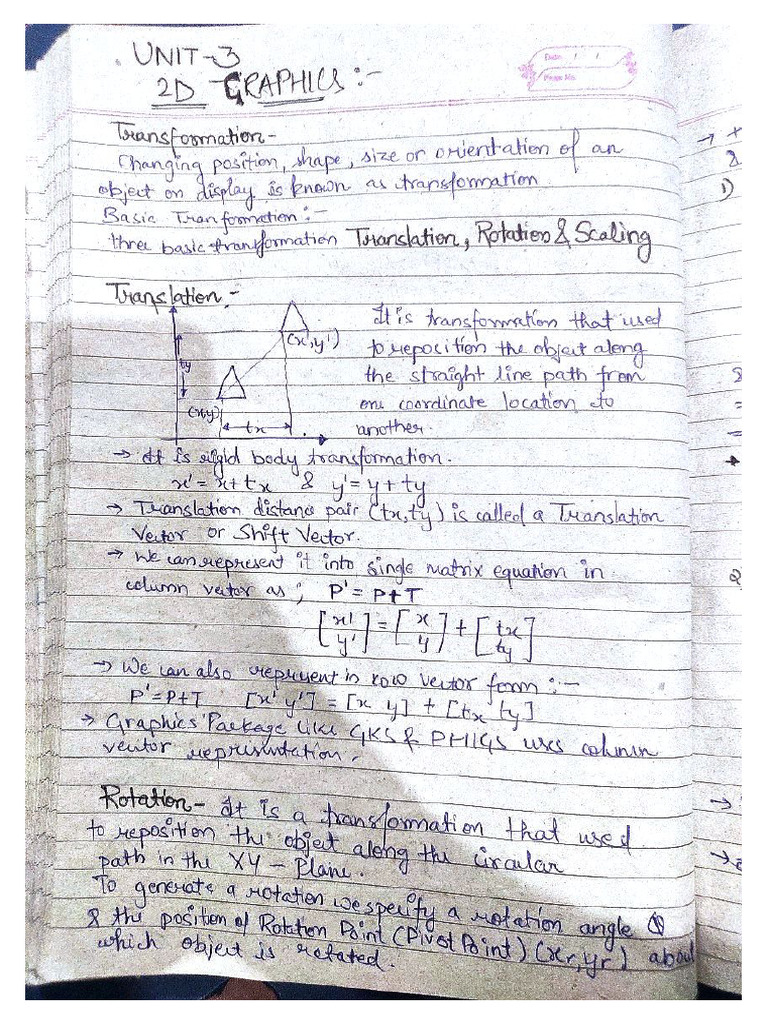 UNIT-3
2D GRAPHICS:-
Date / /
Page No.
Transformation-
Changing position, shape, size or orientation of an
object on display is known as transformation.
Basic Tranformation:-
three basic tranformation Translation, Rotation & Scaling
Translation:-
It is transformation that used
to reposition the object along
the straight line path from
one coordinate location to
another.
(x',y')
ty
(x,y)
tx
→ It is rigid body transformation.
x' = x+tx & y' = y+ty
→ Translation distance pair (tx,ty) is called a Translation
Vector or Shift Vector.
→ We can represent it into single matrix equation in
column vector as; P' = P+T
[x' y'] = [x y] + [tx ty]
→ We can also represent in row vector form:-
P' = P+T [x' y'] = [x y] + [tx ty]
→ Graphics Package like GKS & PHIGS uses column
vector representation.
Rotation- It is a transformation that used
to reposition the object along the circular
path in the XY-Plane.
To generate a rotation we specify a rotation angle
& the position of Rotation Point (Pivot Point) (xr,yr) about
which object is rotated.